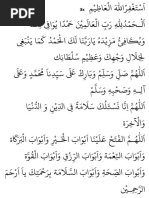 أَسْتَغْفِرُاللهَ الْعَظِيْمِ 3x
اَلْحَمْدُلِلّٰهِ رَبِّ الْعَالَمِيْنَ حَمْدًا يُوَافِى نِعَمَهُ
وَيُكَافِئُ مَزِيْدَهُ يَارَبَّنَا لَكَ الْحَمْدُ كَمَا يَنْبَغِى
لِجَلَالِ وَجْهِكَ وَعَظِيْمِ سُلْطَانِكَ
اَللّٰهُمَّ صَلِّ وَسَلِّمْ وَبَارِكْ عَلَى سَيِّدِنَا مُحَمَّدٍ وَعَلَى
آلِهِ وَصَحْبِهِ
اَللّٰهُمَّ إِنَّا نَسْئَلُكَ سَلَامَةً فِى الدِّيْنِ وَ الدُّنْيَا
وَالْآخِرَة
اَللّٰهُمَّ افْتَحْ عَلَيْنَا أَبْوَابَ الْخَيْرِ وَأَبْوَابَ الْبَرَكَةِ
وَأَبْوَابَ النِّعْمَةِ وَأَبْوَابَ الرِّزْقِ وَأَبْوَابَ الْقُوَّةِ
وَأَبْوَابَ الصِّحَّةِ وَأَبْوَابَ السَّلَامَةِ بِرَحْمَتِكَ يَا أَرْحَمَ
الرَّاحِمِيْنَ